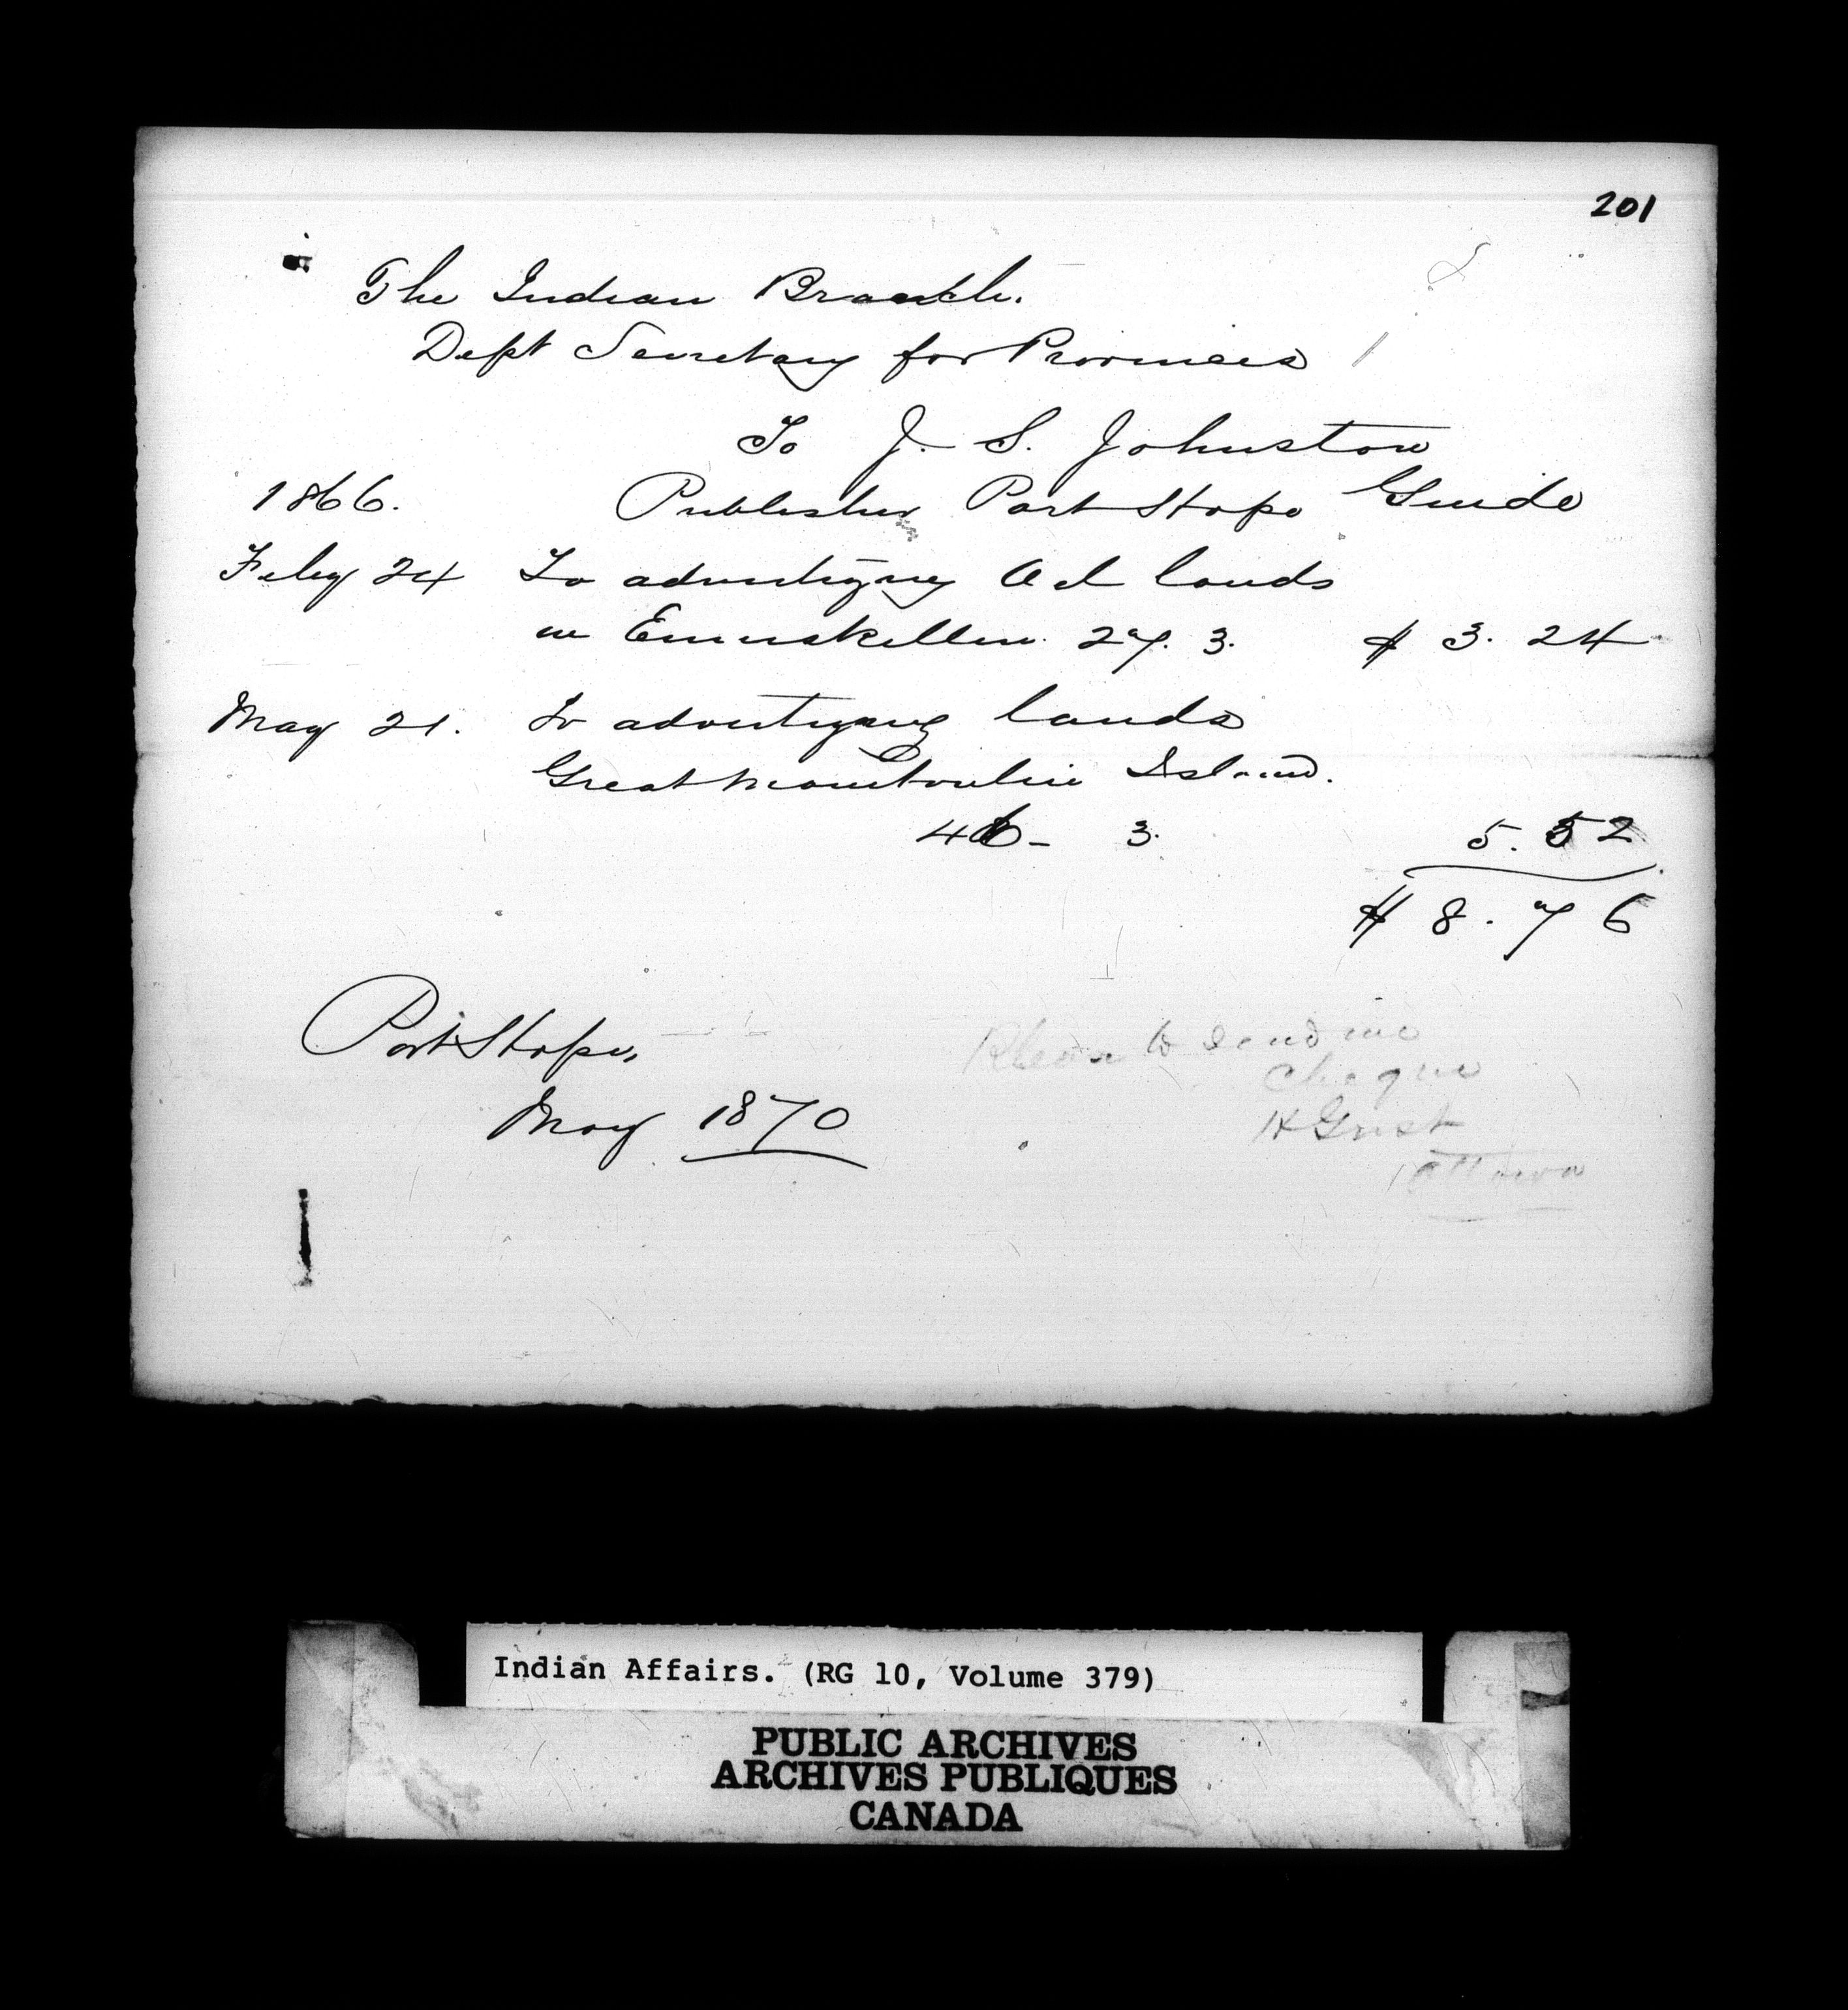 201
The Indian Branch.
Dept Secretary for Provinces
To J. S. Johnston
1866. Publisher Port Hope Guide
Feby 24 To advertizing Oil lands
in Enniskillen. 27. 3. $ 3. 24
May 21. To advertizing lands
Great Manitoulin Island.
46 - 3. 5. 52
$ 8. 76
Port Hope,
May 1870
Please to send me
Cheque
H Grist
Ottawa
Indian Affairs. (RG 10, Volume 379)
PUBLIC ARCHIVES
ARCHIVES PUBLIQUES
CANADA